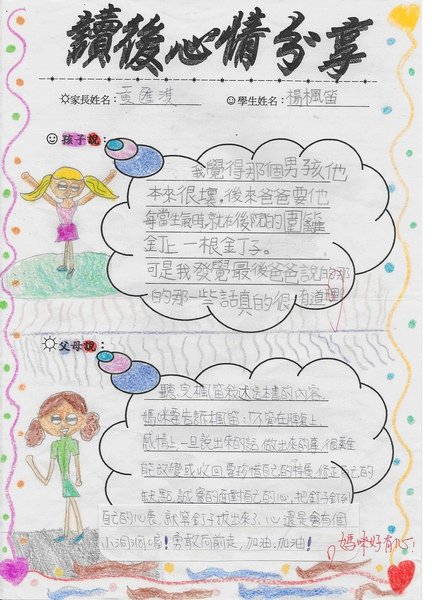 讀後心情分享
家長姓名：黃雅淩 學生姓名：楊楓笛
孩子說：
我覺得那個男孩他
本來很壞。後來爸爸要他
每當生氣時，就在後院的圍籬
釘上一根釘子。
可是我發覺最後爸爸說的那
的那一些話真的很有道理
父母說：
聽完楓笛敘述這本書的內容
媽咪要告訴楓笛：不管在課業上
感情上，一旦說出來的話，做出來的事，很難
能改變或收回，要珍惜自己的特長，修正自己的
缺點，誠實的面對自己的心，把釘子釘在
自己的心裏，就算釘子拔出來了，心還是會有個
小洞洞喔！勇敢向前走，加油，加油！
媽咪好有心！